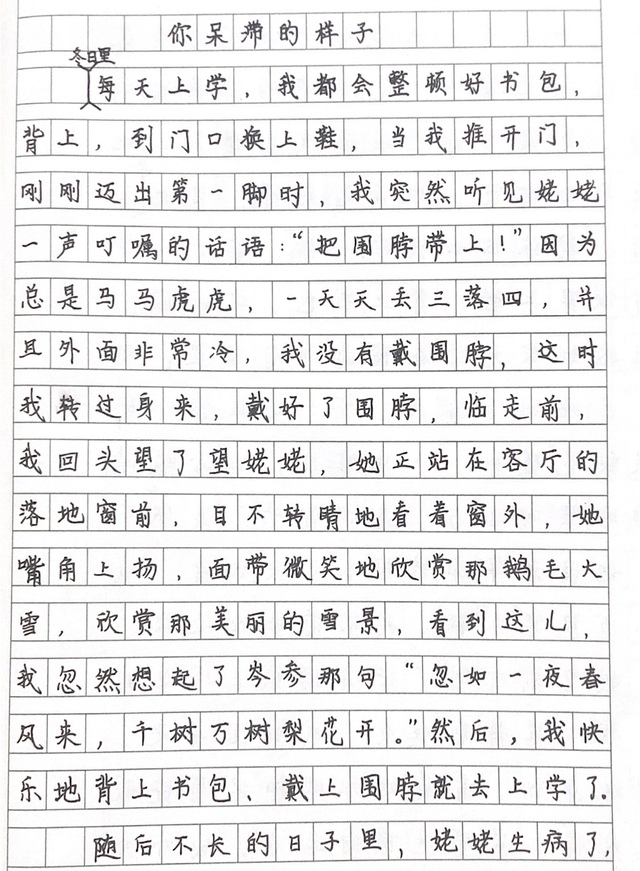 你呆滞的样子
冬日里
每天上学，我都会整顿好书包，
背上，到门口换上鞋，当我推开门，
刚刚迈出第一脚时，我突然听见姥姥
一声叮嘱的话语：“把围脖带上！”因为
总是马马虎虎，一天天丢三落四，并
且外面非常冷，我没有戴围脖，这时
我转过身来，戴好了围脖，临走前，
我回头望了望姥姥，她正站在客厅的
落地窗前，目不转睛地看着窗外，她
嘴角上扬，面带微笑地欣赏那鹅毛大
雪，欣赏那美丽的雪景，看到这儿，
我忽然想起了岑参那句“忽如一夜春
风来，千树万树梨花开。”然后，我快
乐地背上书包、戴上围脖就去上学了。
随后不长的日子里，姥姥生病了，